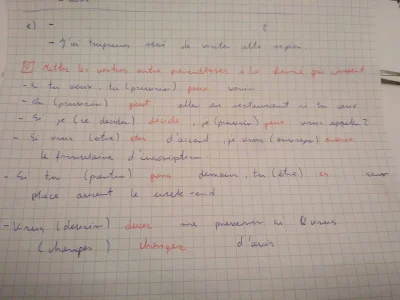 c) -
- J'ai toujours rêvé de visite cette region
Mettre les verbes entre parenthèses à la forme qui convient
- Si tu veux, tu (pouvoir) peux venir
- On (pouvoir) peut aller au restaurant si tu veux
- Si je (se decider) décide, je (pouvoir) peux vous appeler?
- Si vous (être) etes d'accord, je vous (envoyer) envoie
le formulaire d'inscription
- Si tu (partir) pars demain, tu (être) es sur
place avant le week-end
- Vous (devoir) devez me prevenir si vous
(changer) changez d'avis